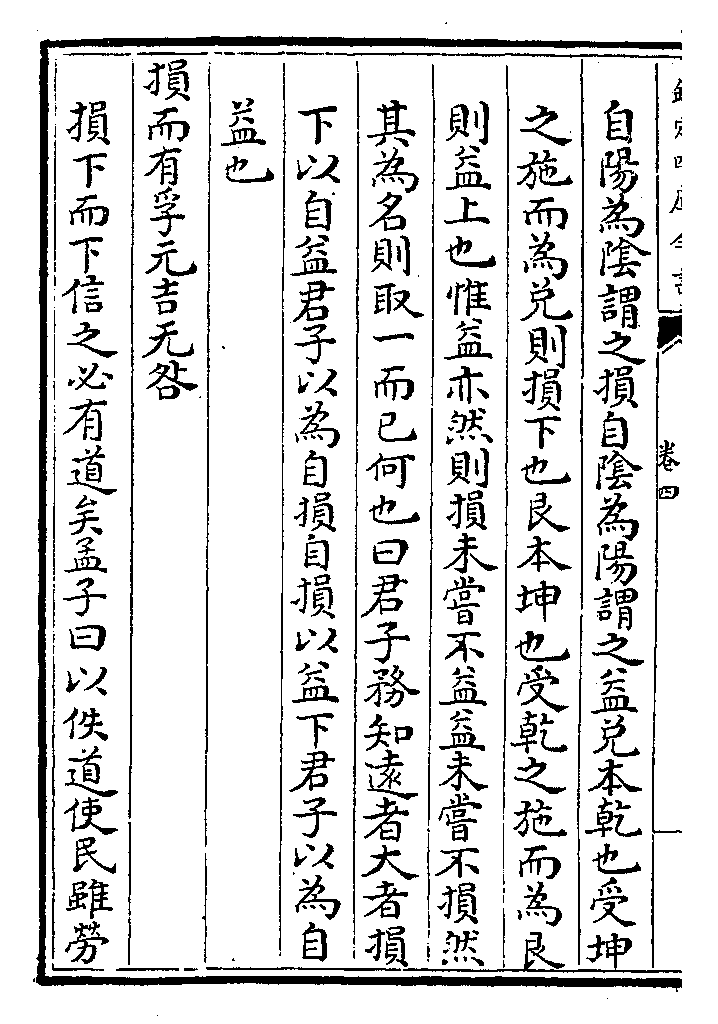 欽定四庫全書
卷四
自陽為陰謂之損自陰為陽謂之益兑本乾也受坤
之施而為兑則損下也艮本坤也受乾之施而為艮
則益上也惟益亦然則損未嘗不益益未嘗不損然
其為名則取一而已何也曰君子務知遠者大者損
下以自益君子以為自損自損以益下君子以為自
益也
損而有孚元吉无咎
損下而下信之必有道矣孟子曰以佚道使民雖勞